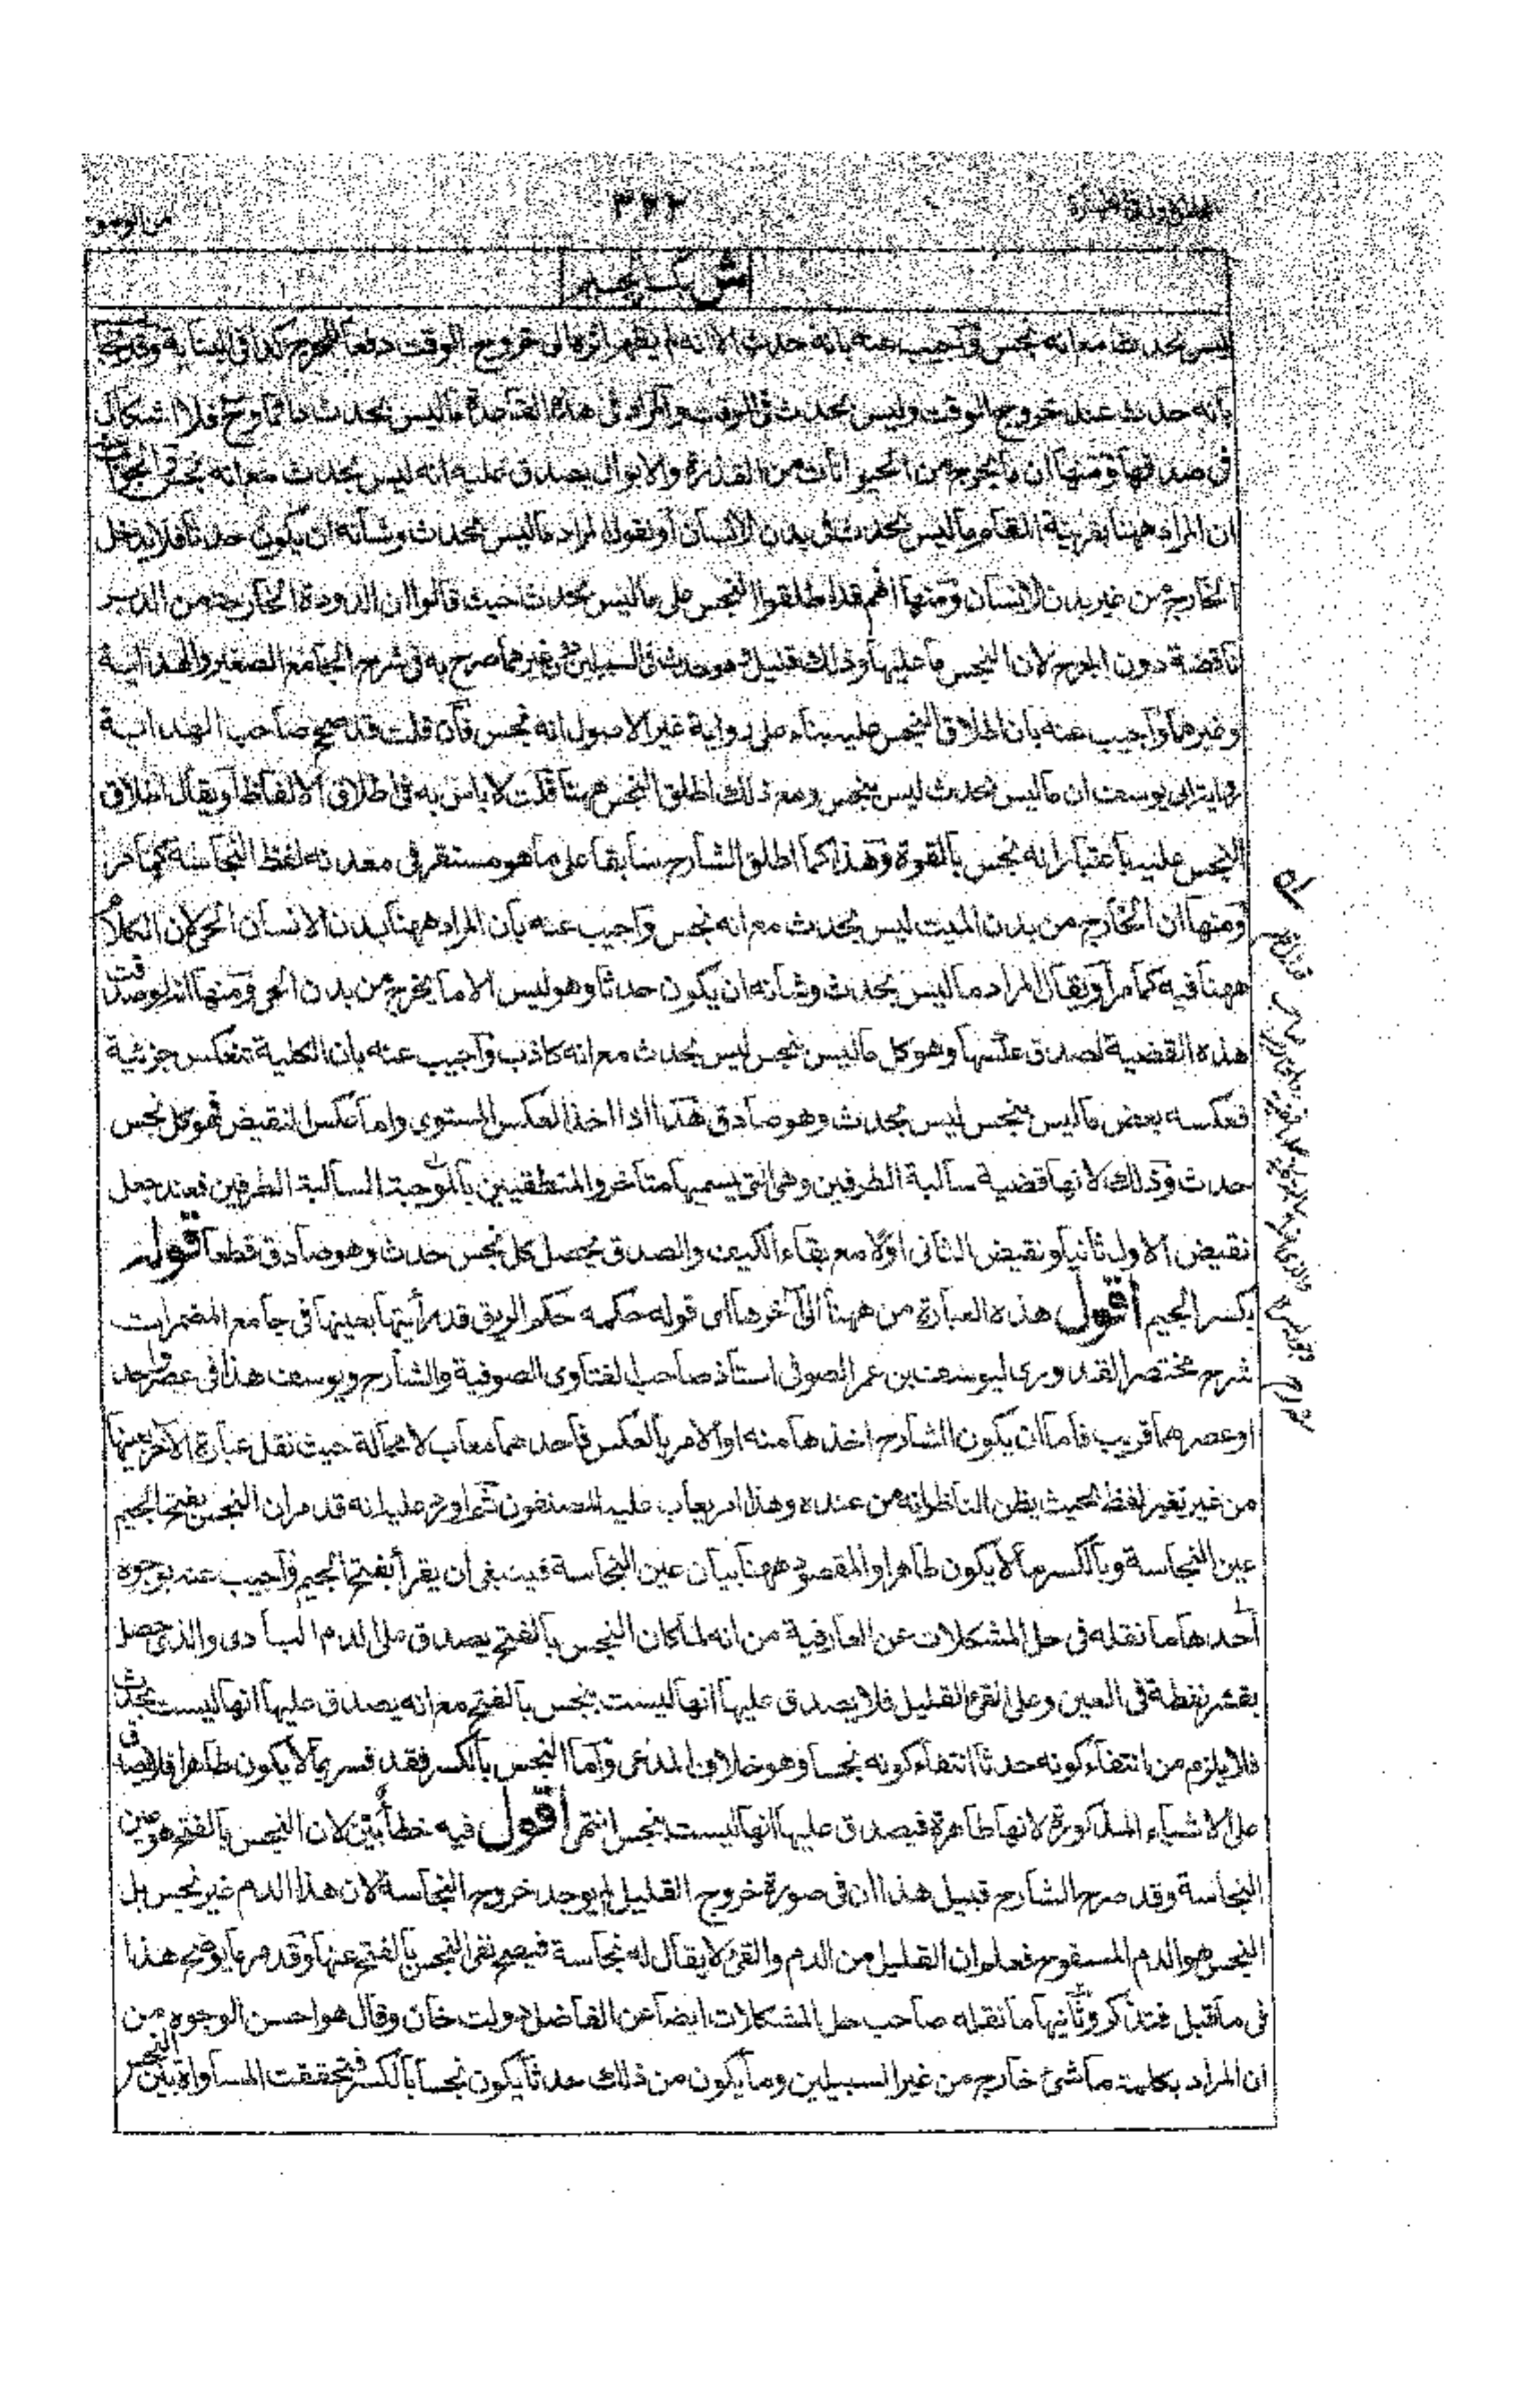 ٣٢٢
ليس بحدث مع انه نجس واجيب عنه بانه حدث الا انه لم يظهر اثره الى خروج الوقت دفعا للحرج كذا فى البناية وقد يجاب
بانه حدث عند خروج الوقت وليس بحدث فى الوقت والمراد فى هذه القاعدة ما ليس بحدث دائما وح فلا اشكال
فى صدقها ومنها ان ما يخرج من الحيوانات من القذرة والابوال يصدق عليه انه ليس بحدث مع انه نجس والجواب
ان المراد ههنا بقرينة المقام ما ليس بحدث فى بدن الانسان او نقول المراد ما ليس بحدث وشانه ان يكون حدثا فلا يدخل
الخارج من غير بدن الانسان ومنها انهم قد اطلقوا النجس على ما ليس بحدث حيث قالوا ان الدودة الخارجة من الدبر
ناقضة دون الجرح لان النجس ما عليها وذلك قليل وهو حدث فى السبيلين دون غيرهما صرح به فى شرح الجامع الصغير والهداية
وغيرهما واجيب عنه بان اطلاق النجس عليه بناء على رواية غير الاصول انه نجس فان قلت قد صحح صاحب الهداية
رواية ابى يوسف ان ما ليس بحدث ليس بنجس ومع ذلك اطلق النجس ههنا قلت لا باس به فى اطلاق الالفاظ او يقال اطلاق
النجس عليه باعتبار انه نجس بالقوة وهذا كما اطلق الشارح سابقا على ما هو مستقر فى معدنه لفظ النجاسة كما مر
ومنها ان الخارج من بدن الميت ليس بحدث مع انه نجس واجيب عنه بان المراد ههنا بدن الانسان الحى لان الكلام
ههنا فيه كما مر او يقال المراد ما ليس بحدث وشانه ان يكون حدثا وهو ليس الا ما يخرج من بدن الحى ومنها انه لو صدقت
هذه القضية لصدق عكسها وهو كل ما ليس بنجس ليس بحدث مع انه كاذب واجيب عنه بان الكلية تنعكس جزئية
فعكسه بعض ما ليس بنجس ليس بحدث وهو صادق هذا اذا اخذ العكس المستوى واما عكس النقيض فهو كل نجس
حدث وذلك لانها قضية سالبة الطرفين وهى التى يسميها متاخروا المنطقيين بالموجبة السالبة الطرفين فعند جعل
نقيض الاول ثانيا ونقيض الثانى اولا مع بقاء الكيف والصدق يحصل كل نجس حدث وهو صادق قطعا قوله
بكسر الجيم اقول هذه العبارة من ههنا الى آخرها اى قوله حكمه حكم الريق قد رأيتها بعينها فى جامع المضمرات
شرح مختصر القدورى ليوسف بن عمر الصوفى استاذ صاحب الفتاوى الصوفية والشارح ويوسف هذا فى عصر واحد
او عصرهما قريب فاما ان يكون الشارح اخذها منه او الامر بالعكس فاحدهما معاب لا محالة حيث نقل عبارة الآخر بعينها
من غير تغير لفظ بحيث يظن الناظر انه من عنده وهذا امر يعاب عليه المصنفون ثم اورد عليه انه قد مر ان النجس بفتح الجيم
عين النجاسة وبالكسر ما لا يكون طاهرا والمقصود ههنا بيان عين النجاسة فينبغى ان يقرأ بفتح الجيم واجيب عنه بوجوه
احدها ما نقله فى حل المشكلات عن العارفية من انه لما كان النجس بالفتح يصدق على الدم البادى والذى حصل
بقشر نفطة فى العين وعلى القئ القليل فلا يصدق عليها انها ليست بنجس بالفتح مع انه يصدق عليها انها ليست بحدث
فلا يلزم من انتفاء كونه حدثا انتفاء كونه نجسا وهو خلاف المدعى واما النجس بالكسر فقد فسر بما لا يكون طاهرا فلا يصدق
على الاشياء المذكورة لانها طاهرة فيصدق عليها انها ليست بنجس انتهى اقول فيه خطأ بين لان النجس بالفتح هو عين
النجاسة وقد صرح الشارح قبيل هذا ان فى صورة خروج القليل لم يوجد خروج النجاسة لان هذا الدم غير نجس بل
النجس هو الدم المسفوح فعلم ان القليل من الدم والقئ لا يقال له نجاسة فيصح نفى النجس بالفتح عنها وقد مر ما يوضح هذا
فى ما قبل فتذكر وثانيها ما نقله صاحب حل المشكلات ايضا عن الفاضل دولت خان وقال هو احسن الوجوه من
ان المراد بكلمة ما شئ خارج من غير السبيلين وما يكون من ذلك حدثا يكون نجسا بالكسر فتحققت المساواة بين النجس